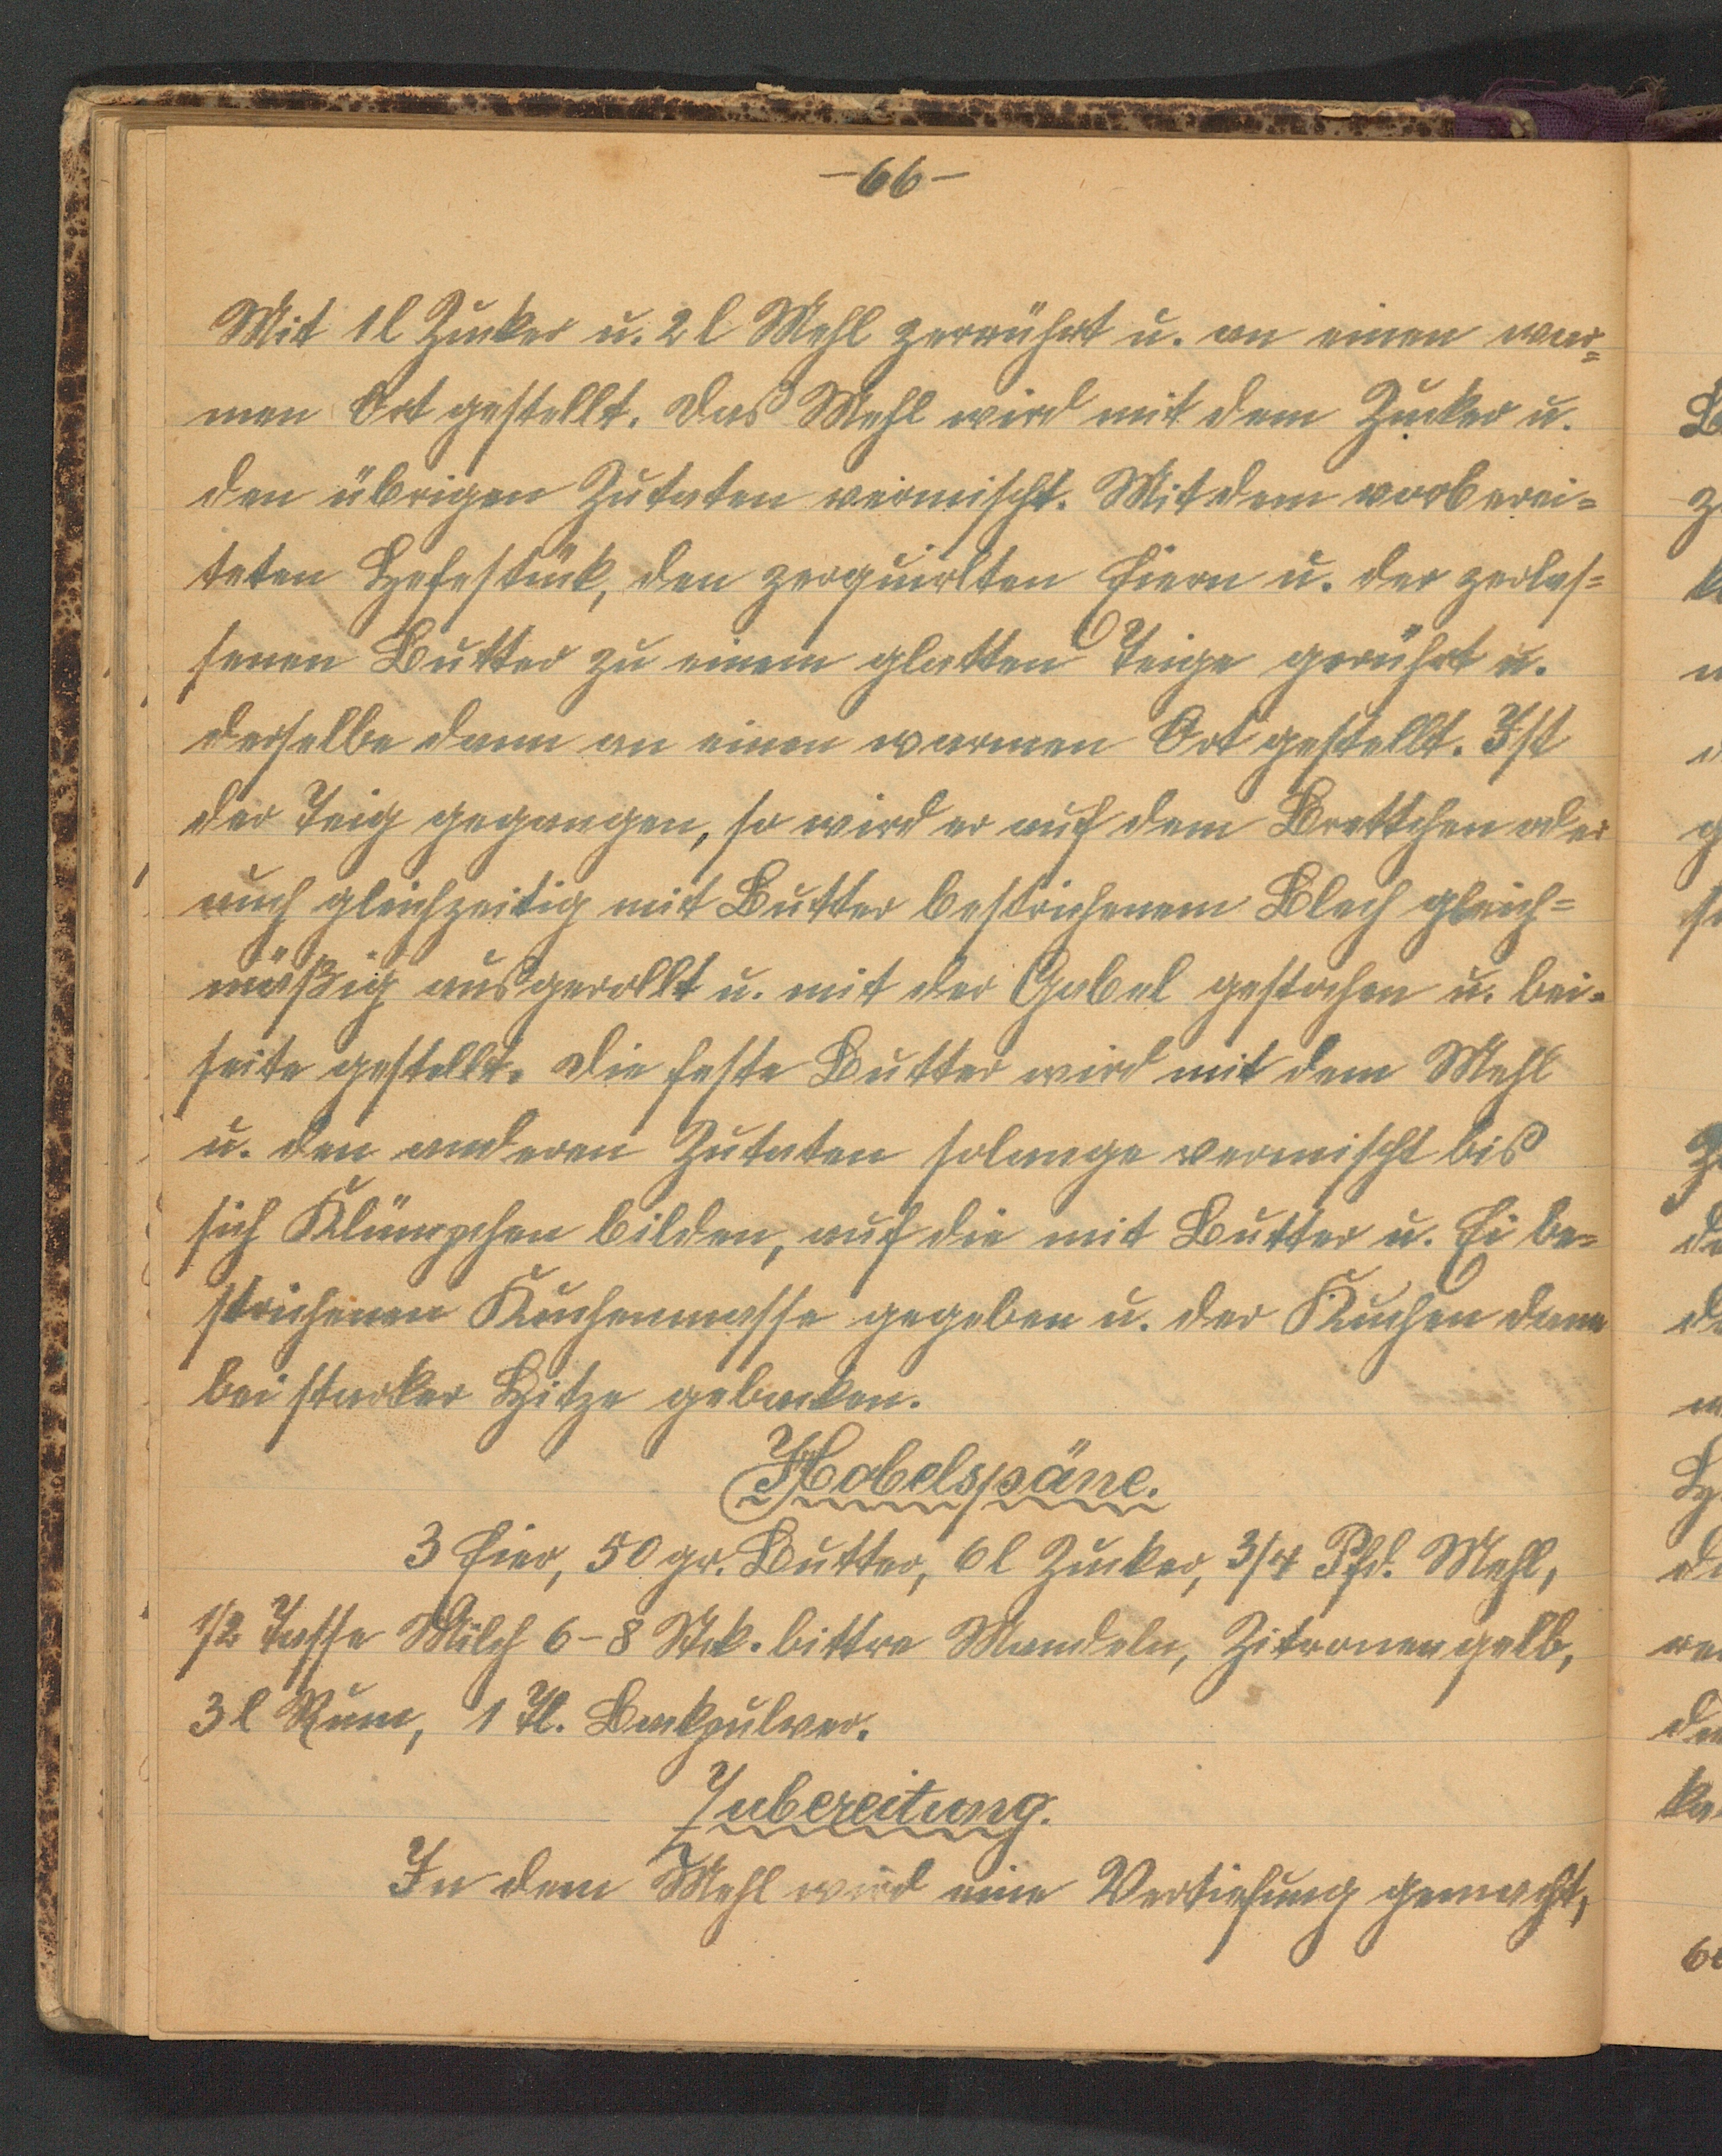 -66-
Mit 1 l Zucker u. 2 l Mehl zerrührt u. an einen war=
men Ort gestellt. Das Mehl wird mit dem Zucker u.
den übrigen Zutaten vermischt. Mit dem vorberei=
teten Hefestück, den zerquirlten Eiern u. der zerlas=
senen Butter zu einem glatten Teige gerührt u.
derselbe dann an einen warmen Ort gestellt. Ist
der Teig gegangen, so wird er auf dem Brettchen oder
auch gleichzeitig mit Butter bestrichenem Blech gleich=
mäßig ausgerollt u. mit der Gabel gestochen u. bei=
seite gestellt. Die feste Butter wird mit dem Mehl
u. den anderen Zutaten solange vermischt bis
sich Klümpchen bilden, auf die mit Butter u. Ei be=
strichenen Kuchenmasse gegeben u. der Kuchen dann
bei starker Hitze gebacken.
Hobelspäne.
3 Eier, 50 gr. Butter, 6 l Zucker, 3/4 Pfd. Mehl,
1/2 Tasse Milch 6-8 Stck. bittre Mandeln, Zitronengelb,
3 l Rum, 1 Tl. Backpulver.
Zubereitung.
In dem Mehl wird eine Vertiefung gemacht,